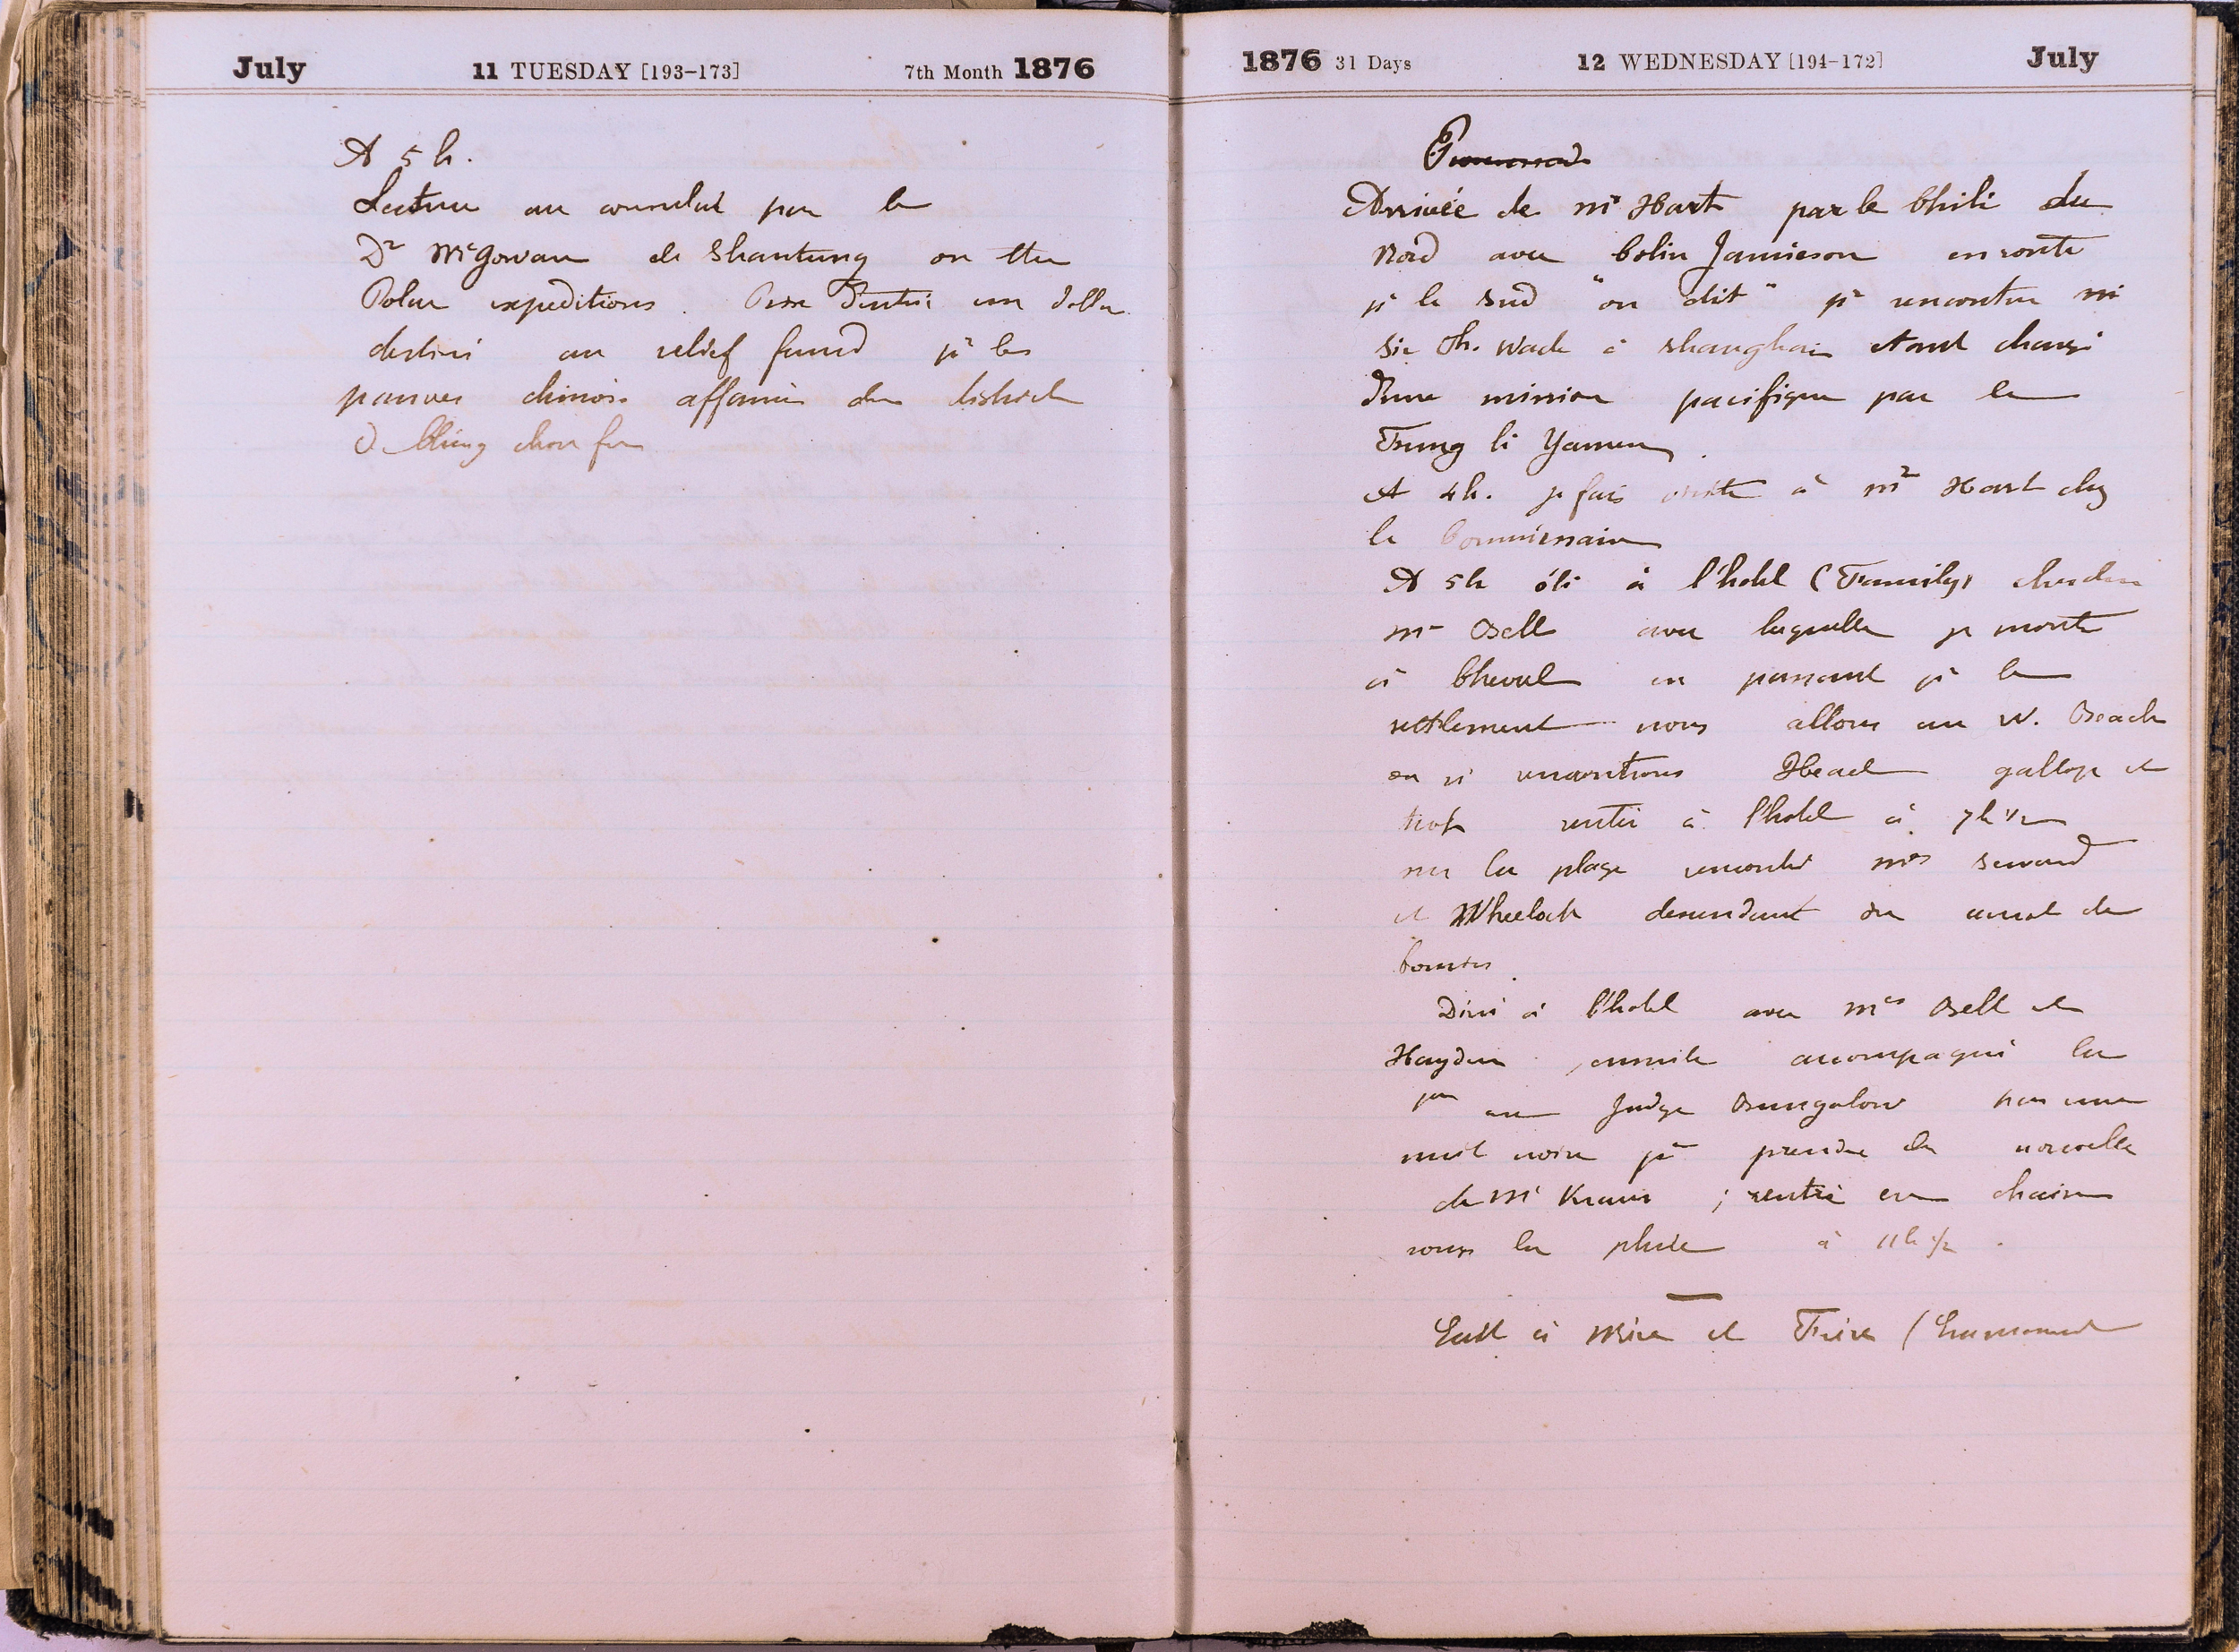 July 11 TUESDAY [193-173] 7th Month 1876
A 5 h.
Lecture au consulat par le
Dr McGowan de Shantung on the
Polar expeditions. Prix d'entrée un dollar
destiné au relief fund pr les
pauvres chinois affamés du district
d Ching chou fu
1876 31 Days 12 WEDNESDAY [194-172] July
Promenade
Arrivée de Mr Hart par le Chihli du
Nord avec Colin Jamieson en route
pr le Sud "on dit" pr rencontrer
Sir Th. Wade à Shanghai étant chargé
d'une mission pacifique par le
Tsung li Yamen.
A 4h. je fais visite à Mr Hart chez
le Commissaire
A 5h été à l'hotel (Family) chercher
Me Bell avec laquelle je monte
à Cheval en passant pr le
settlement nous allons au W. Beach
en y rencontrons Head gallop et
trot rentré à l'hotel à 7h 1/2
sur la plage rencontré Mrs Seward
et Wheelock descendant du canot de
courses.
Diné à l'hotel avec Mes Bell et
Hayden, ensuite accompagné la
pre au Judge Bungalow par une
nuit noire pr prendre des nouvelles
de Mr Kraus ; rentré en chaise
sous la pluie à 11h 1/2.
Ecrit à Mère et Frère (Emmanuel